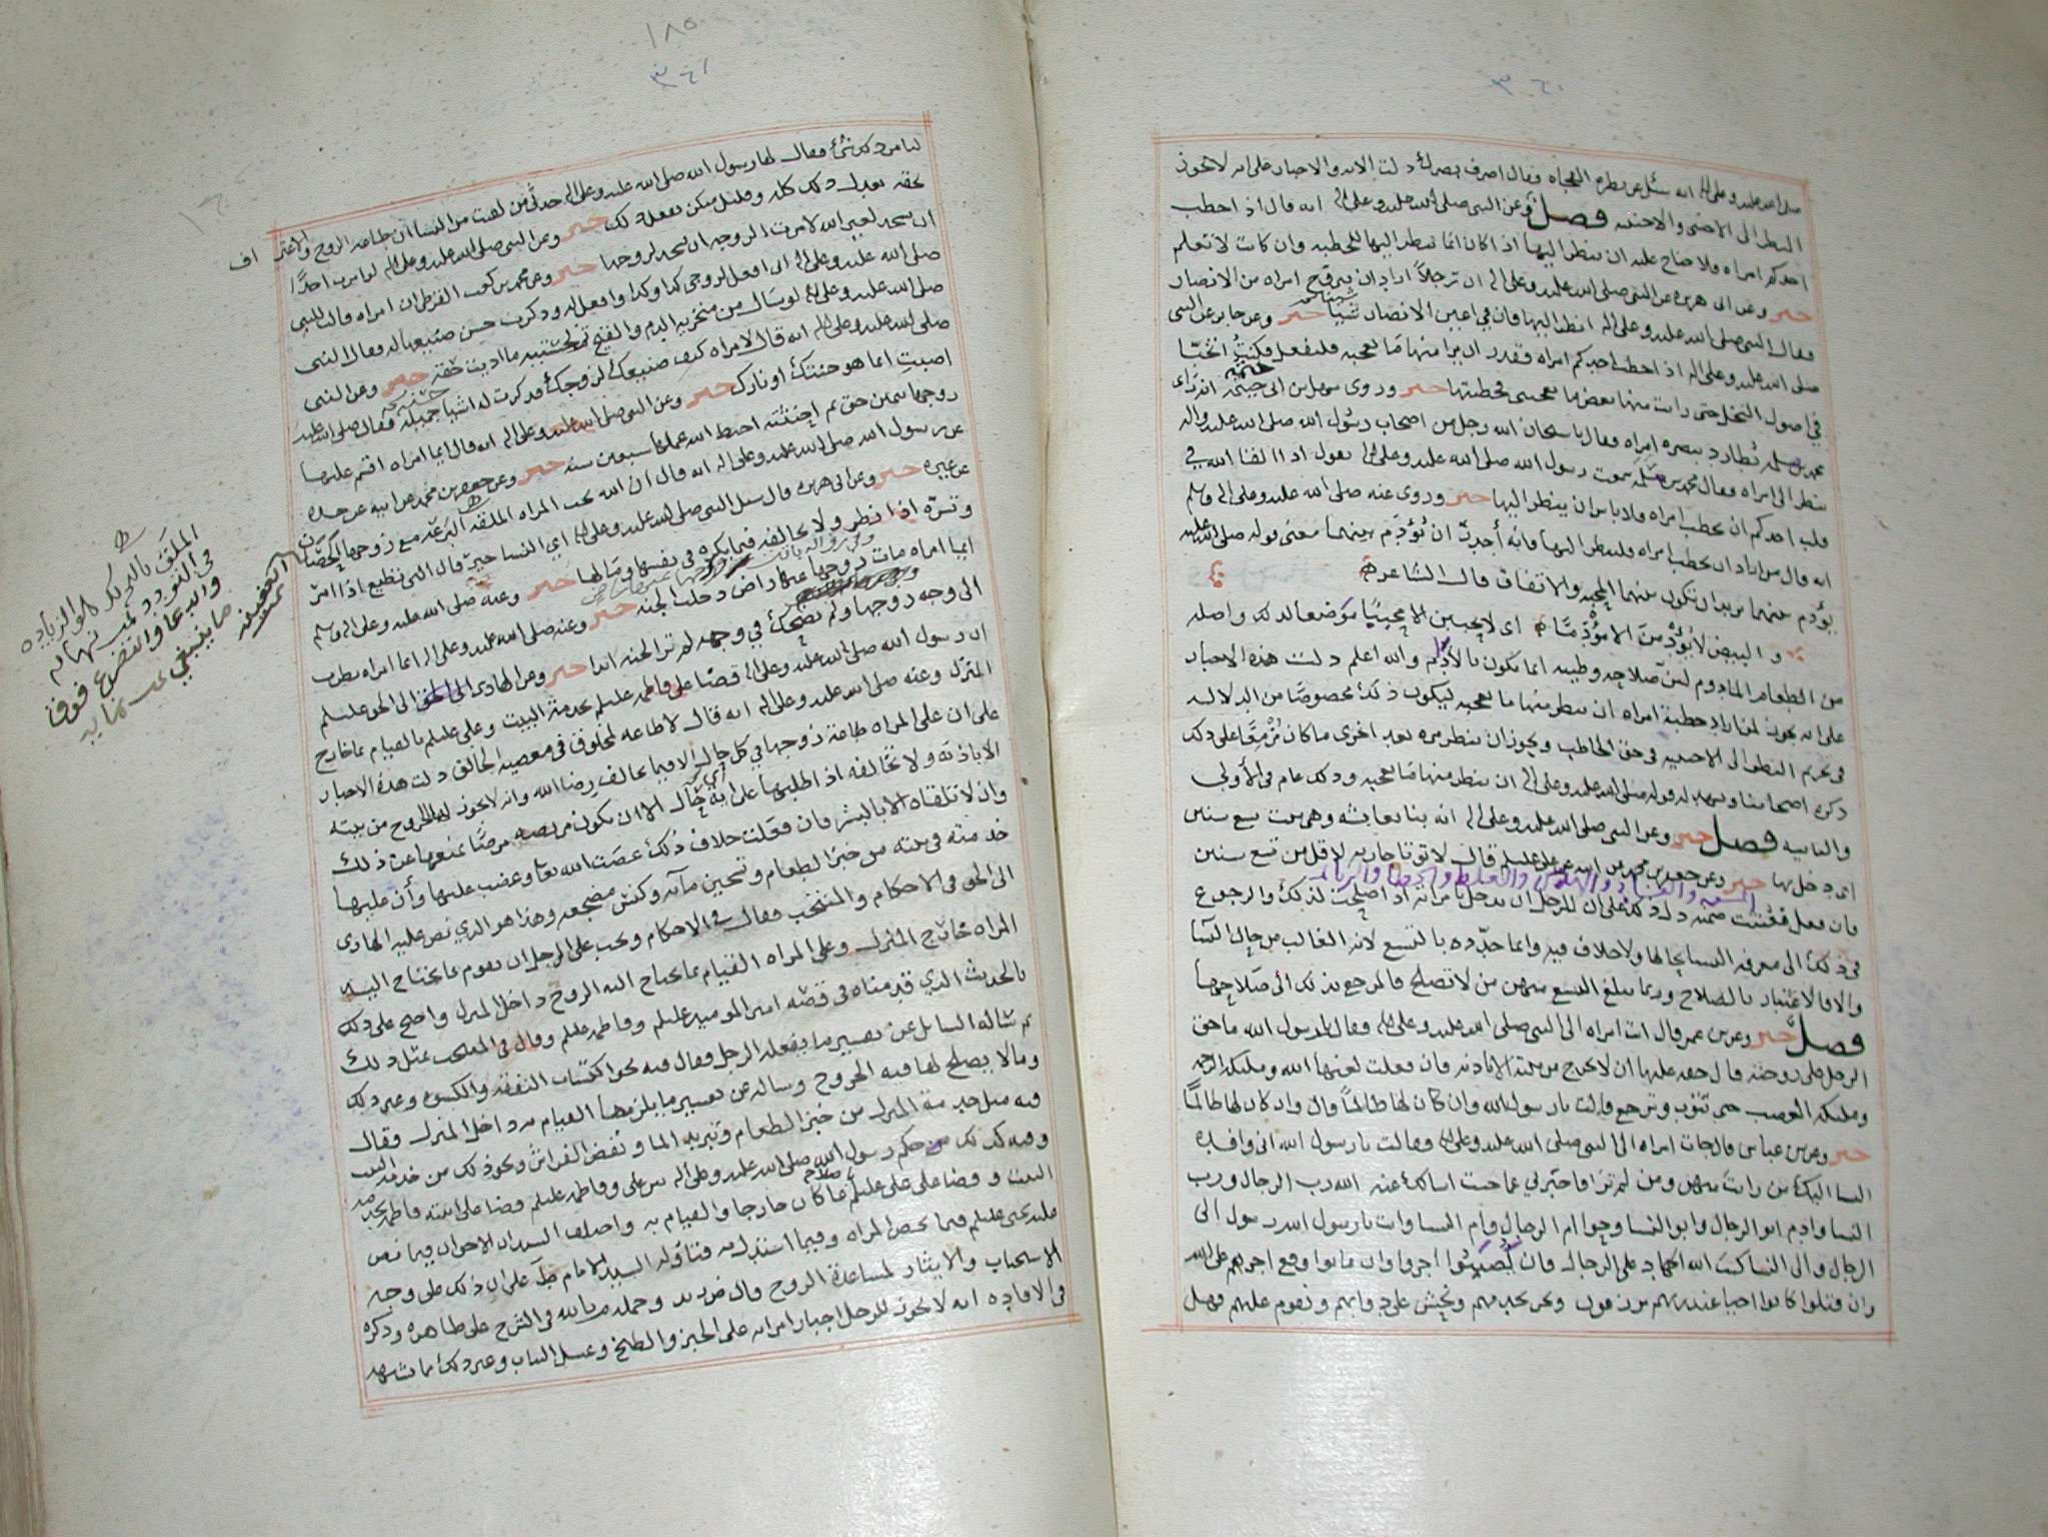 ٣٦٠
صلى الله عليه وعلى اله انه سئل عن نظره الفجاه فقال اصرف بصرك دلت الايه والاخبار على انه لا يجوز
النظر الى الاجنبي والاجنبيه فصل وعن النبي صلى الله عليه وعلى اله انه قال اذا خطب
احدكم امراه ولا جناح عليه ان ينظر اليها اذا كان انما ينظر اليها للخطبه وان كانت لا تعلم
خبر وعن ابي هريره عن النبي صلى الله عليه وعلى اله ان رجلاً اراد ان يتزوج امراه من الانصار
فقال النبي صلى الله عليه وعلى اله انظر اليها فان في اعين الانصار شيئا خبر وعن جابر عن النبي
صلى الله عليه وعلى اله اذا خطب احدكم امراه فقدر ان يرا منها ما يعجبه فليفعل فكنت اتخبا
في اصول النخل حتى رايت منها بعض ما يعجبني فخطبتها خبر وروى سهل بن ابي حثمه انه راى
محمد بن مسلمه يطارد ببصره امراه فقال يا سبحان الله رجل من اصحاب رسول الله صلى الله عليه واله
ينظر الى امراه فقال محمد بن مسلمه سمعت رسول الله صلى الله عليه وعلى اله يقول اذا القا الله في
قلب احدكم ان يخطب امراه ولا باس ان ينظر اليها خبر وروي عنه صلى الله عليه وعلى اله وسلم
انه قال من اراد ان يخطب امراه فلينظر اليها فانه أحرى ان يؤدم بينهما معنى قوله صلى الله عليه
يؤدم بينهما يريد ان تكون بينهما المحبه والاتفاق قال الشاعر
و البيض لا يؤدمن الا مؤدما اي لا يحببن الا محببا موضعا لذلك واصله
من الطعام المادوم لان صلاحه وطيبه انما يكون بالأدم والله اعلم دلت هذه الاخبار
على انه يجوز لمن اراد خطبة امراه ان ينظر منها ما يعجبه ليكون ذلك مخصوصا من الدلاله
في تحريم النظر الى الاجنبيه في حق الخاطب ويجوز ان ينظر مره بعد اخرى ما كان مزمعا على ذلك
ذكره اصحابنا ويشهد له قوله صلى الله عليه وعلى اله ان ينظر منها ما يعجبه وذلك عام في الأولى
والثانيه فصل خبر وعن النبي صلى الله عليه وعلى اله انه بنا بعايشه وهي بنت تسع سنين
اي دخل بها خبر وعن جعفر بن محمد عن ابيه عن علي عليلم قال لا توتا جاريه لاقل من تسع سنين
فان فعل فعنتت ضمن دل ذلك على ان للرجل ان يدخل بامراته اذا صلحت لذلك والرجوع
في ذلك الى معرفه النسا بحالها ولا خلاف فيه وانما حدده بالتسع لانه الغالب من حال النسا
والا فالاعتبار بالصلاح وربما تبلغ التسع منهن من لا تصلح فالمرجع بذلك الى صلاحها
فصل خبر وعن بن عمر قال اتت امراه الى النبي صلى الله عليه وعلى اله فقالت يا رسول الله ما حق
الرجل على زوجته قال حقه عليها ان لا تخرج من بيته الا باذنه فان فعلت لعنها الله وملائكة الرحمه
وملائكه الغضب حتى تتوب وترجع قالت يا رسول الله وان كان لها ظالماً قال وان كان لها ظالماً
خبر وعن بن عباس قال جات امراه الى النبي صلى الله عليه وعلى اله وقالت يا رسول الله اني وافده
النسا اليك من رايت منهن ومن لم تر فاخبرني عما جيت اسالك عنه الله رب الرجال ورب
النسا وادم ابو الرجال وابو النسا وحوا ام الرجال وام النسا وانت يا رسول الله رسول الى
الرجال والى النسا كتب الله الجهاد على الرجال فان يصيبوا اجروا وان ماتوا وقع اجرهم على الله
وان قتلوا كانوا احيا عند ربهم يرزقون ونحن نخدمهم ونحش على دوابهم ونقوم عليهم فهل
١٨٥
٣٦١
لنا من ذلك شي فقال لها رسول الله صلى الله عليه وعلى اله حدثي من لقيت من النسا ان طاعه الزوج والاعتراف
بحقه يعدل ذلك كله وقليل منكن يفعل ذلك خبر وعن النبي صلى الله عليه وعلى اله لو امرت احدًا
ان يسجد لغير الله لامرت الزوجه ان تسجد لزوجها خبر وعن محمد بن كعب القرظي ان امراه قالت للنبي
صلى الله عليه وعلى اله اني افعل لزوجي كذا وكذا وافعل له وذكرت حسن صنيعها له فقال النبي
صلى الله عليه وعلى اله لو سال من منخريه الدم والقيح ثم لحستيه ما اديت حقه خبر وعن النبي
صلى الله عليه وعلى اله انه قال لامراه كيف صنيعك لزوجك فذكرت له اشيا جميله فقال صلى الله عليه
اصبت انما هو جنتك او نارك خبر وعن النبي صلى الله عليه وعلى اله انه قال ايما امراه اقسم عليها
زوجها يمين حق ثم احنثته احبط الله عملها سبعين سنه خبر وعن جعفر بن محمد عن ابيه عن جده
عن رسول الله صلى الله عليه وعلى اله انه قال ان الله يحب المراه الملقه البزعه مع زوجها الحصان
عن غيره خبر وعن ابي هريره قال سئل النبي صلى الله عليه وعلى اله اي النسا خير قال التي تطيع اذا امر
وتسره اذا نظر ولا تخالفه فيما يكره في نفسها ومالها خبر وعنه صلى الله عليه وعلى اله وسلم
ايما امراه مات زوجها عنها راض دخلت الجنه خبر وعنه صلى الله عليه وعلى اله ايما امراه نظرت
الى وجه زوجها ولم تضحك في وجهه لم تر الجنه ابدا خبر وعن الهادي الى الحق عليلم
ان رسول الله صلى الله عليه وعلى اله قضا على فاطمه عليلم بخدمة البيت وعلى علي عليلم بالقيام بما خارج
المنزل وعنه صلى الله عليه وعلى اله انه قال لا طاعه لمخلوق في معصيه الخالق دلت هذه الاخبار
على ان على المراه طاعة زوجها في كل حال الا فيما يخالف رضا الله وانه لا يجوز لها الخروج من بيته
الا باذنه ولا تخالفه اذا طلبها على اية حال الا ان تكون مريضه مرضا يمنعها عن ذلك
وان لا تلقاه الا بالبشر فان فعلت خلاف ذلك عصت الله تعا وغضب عليها وأن عليها
خدمته في بيته من خبز الطعام وتسخين مآئه وكنس مضجعه وهذا هو الذي نص عليه الهادي
الى الحق في الاحكام والمنتخب فقال في الاحكام ويجب على الرجل ان يقوم بما تحتاج اليه
المراه خارج المنزل وعلى المراه القيام بما يحتاج اليه الزوج داخل المنزل واحتج على ذلك
بالحديث الذي قدمناه في قضه امير المومنين عليلم وفاطمه عليلم وقال في المنتخب بمثل ذلك
ثم ساله السايل عن تفسير ما يفعله الرجل فقال فيه نحو اكتساب النفقه والكسوه وغير ذلك
ومالا يصلح لها فيه الخروج وساله عن تفسير ما يلزمها القيام به داخل المنزل وقال
فيه مثل خدمة المنزل من خبز الطعام وتبريد الما ونفض الفراش ونحو ذلك من خدمه البيت
وفيه كذلك حكم رسول الله صلى الله عليه وعلى اله بين علي وفاطمه عليلم قضا على ابنته فاطمه بخدمه
البيت وقضا على علي عليلم باصلاح ما كان خارجا والقيام به واختلف السيدان الاخوان فيما نص
عليه يحيى عليلم فيما يخص المراه وفيما استدل به فتاوله السيد الامام ط على ان ذلك على وجه
الاستحباب والايثار لمساعدة الزوج قال مد بالله وحمله مد بالله في الشرح على ظاهره وذكره
في الافاده انه لا يجوز للرجل اجبار امراته على الخبز والطبخ وغسل الثياب وغير ذلك مما تشهد
الملق بالتحريك هو الزياده
في التودد
والدعا والتضرع فوق
ما ينبغي